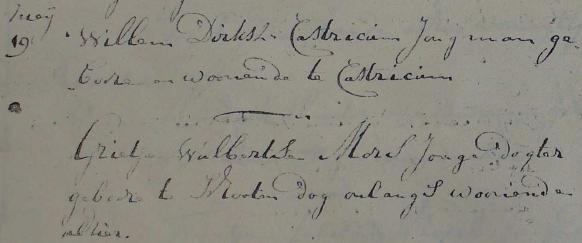 Meij
19 Willem Dirksz Castricum Jongman ge-
bore en woonende te Castricum
Grietje Wulbertse Mors Jonge dogter
gebore te dog onlangs woonende
alhier.